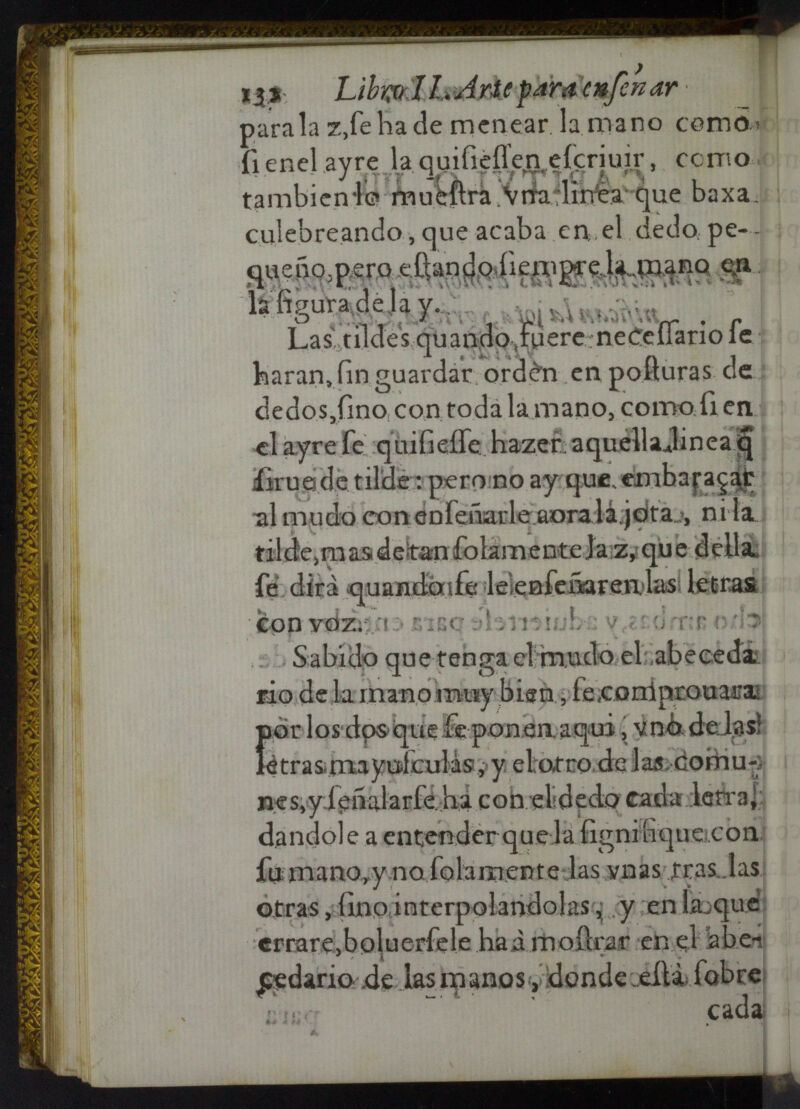 132 Libro II. Arte para enſeñar
para la z, ſe ha de menear la mano como
ſi en el ayre la quiſieſſen eſcriuir, como
tambien lo mueſtra vna linea que baxa
culebreando, que acaba en el dedo pe-
queño, pero eſtando ſiempre la mano en
la figura de la y.
Las tildes quando fuere neceſſario ſe
haran, ſin guardar ordèn en poſturas de
dedos, ſino con toda la mano, como ſi en
el ayre ſe quiſieſſe hazer aquella linea q̃
ſirue de tilde: pero no ay que embaraçar
al mudo con enſeñarle aora la jota, ni la
tilde, mas de tan ſolamente la z, que della
ſe dirà quando ſe le enſeñaren las letras
con voz.
Sabido que tenga el mudo el abeceda
rio de la mano muy bien, ſe comprouara
por los dos que ſe ponen aqui, vno de las
letras mayuſculas, y el otro de las comu-
nes, y ſeñalarſe ha con el dedo cada letra,
dandole a entender que la ſignifique con
ſu mano, y no ſolamente las vnas tras las
otras, ſino interpolandolas, y en la que
errare, boluerſele ha à moſtrar en el abe-
cedario de las manos, donde eſtà ſobre
cada